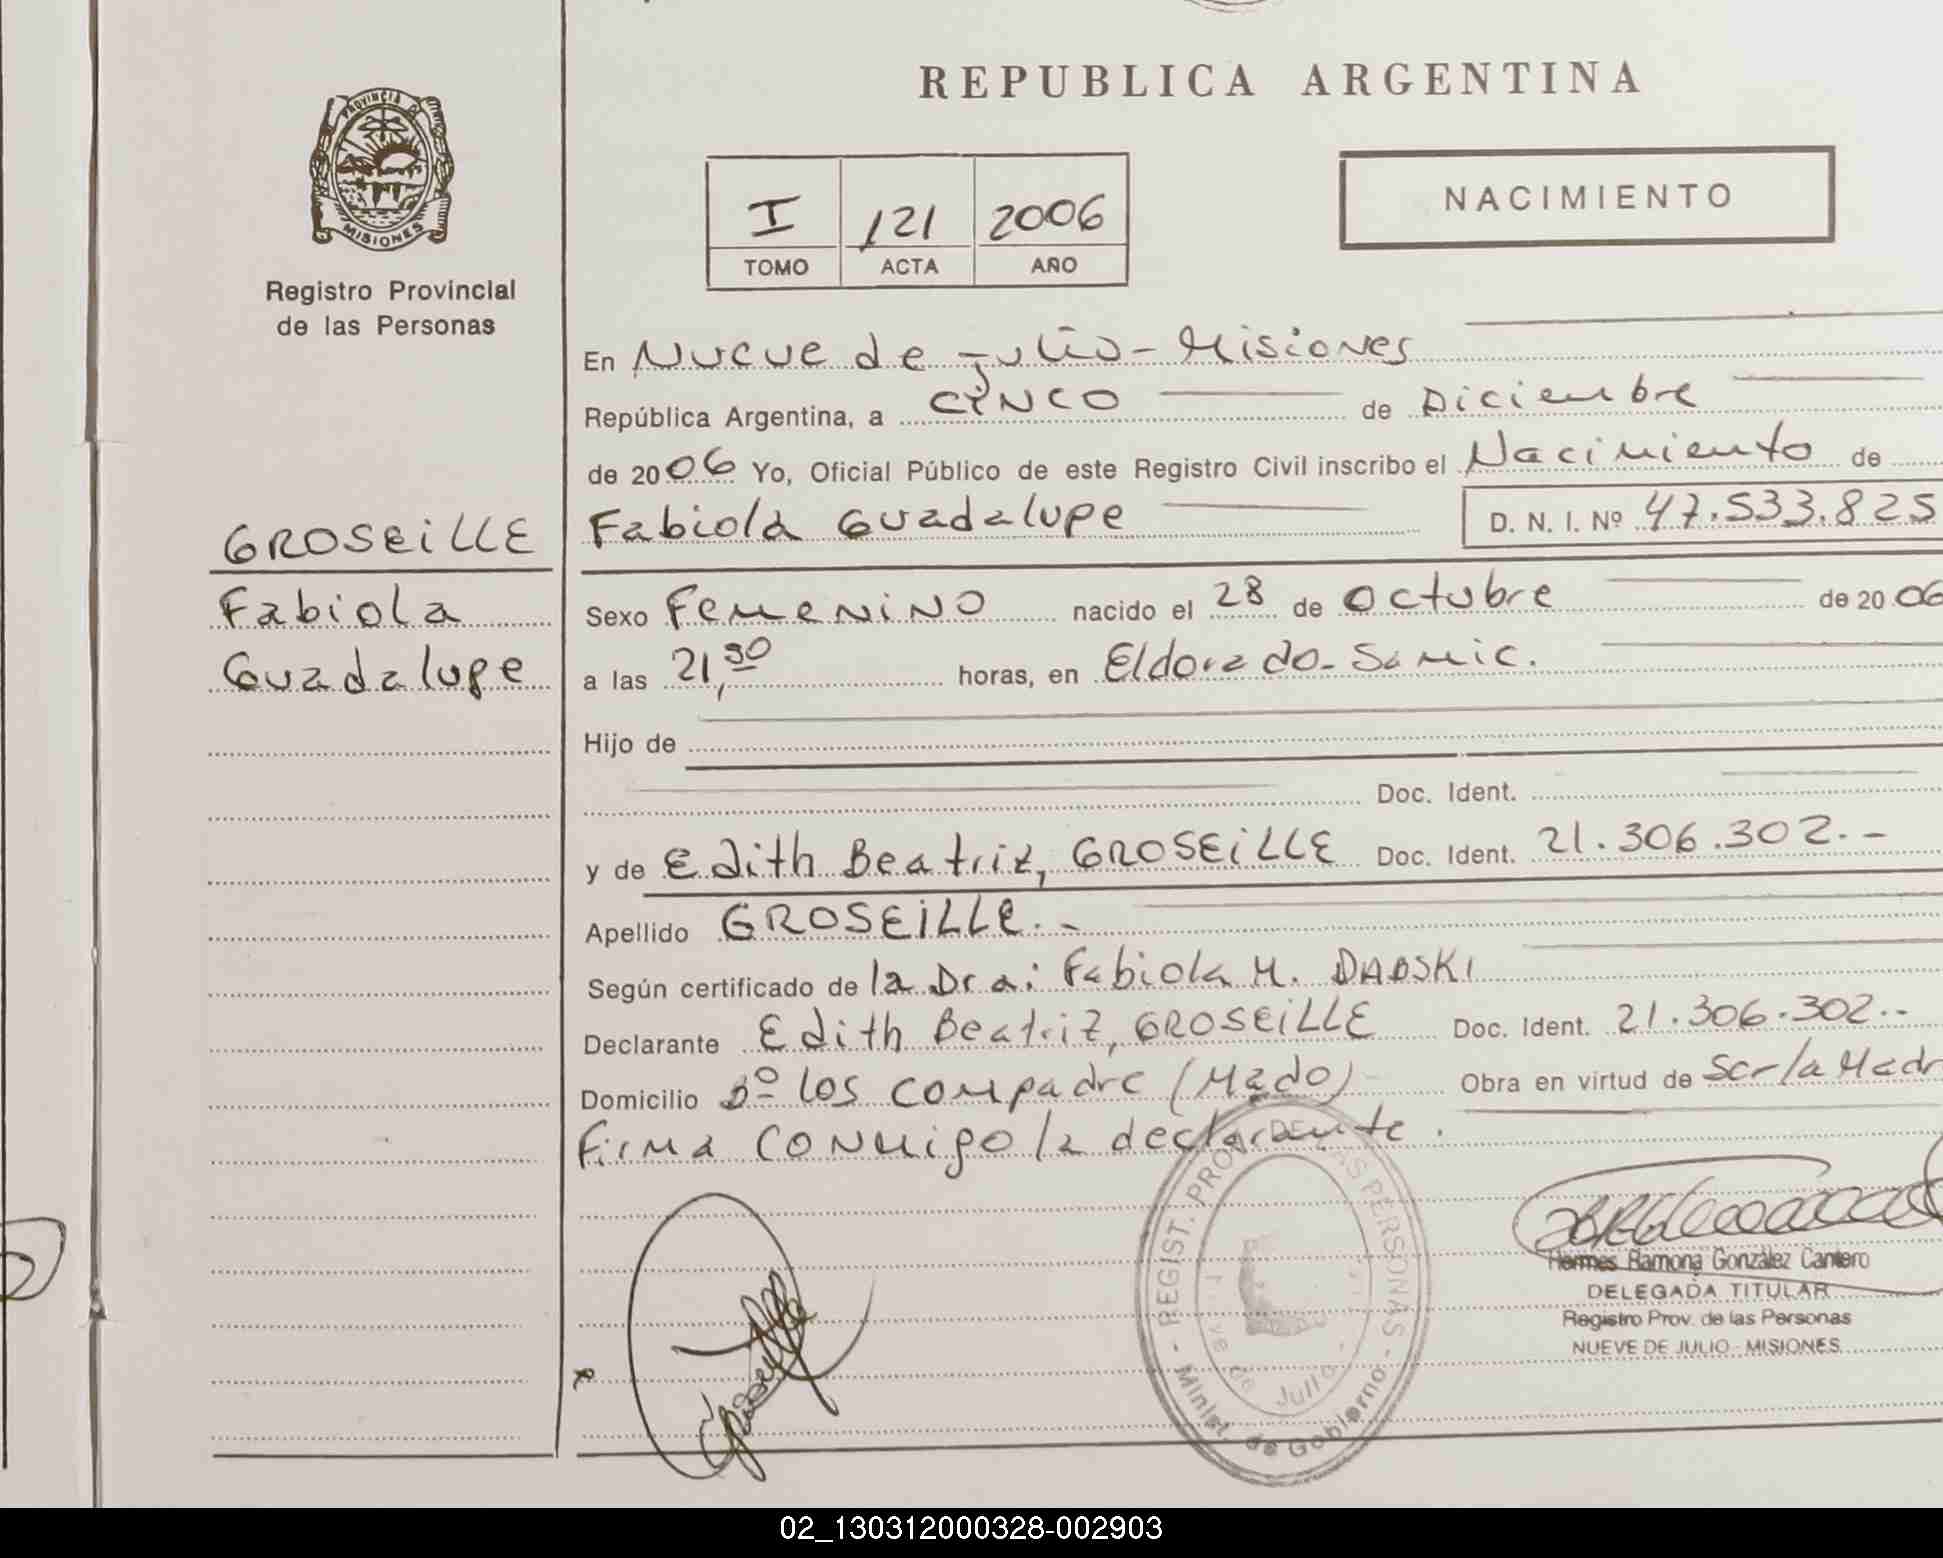 REPUBLICA ARGENTINA
PROVINCIA DE
MISIONES
Registro Provincial
de las Personas
I 121 2006
TOMO ACTA AÑO
NACIMIENTO
En Nueve de Julio - Misiones
República Argentina, a cinco de Diciembre
de 2006 Yo, Oficial Público de este Registro Civil inscribo el Nacimiento de
GROSEiLLE
Fabiola Guadalupe D. N. I. Nº 47.533.825
Fabiola
Guadalupe
Sexo Femenino nacido el 28 de Octubre de 2006
a las 21,30 horas, en Eldorado - Samic.
Hijo de
Doc. Ident.
y de Edith Beatriz, GROSEiLLE Doc. Ident. 21.306.302.-
Apellido GROSEiLLE.-
Según certificado de la Dra: Fabiola M. DABSKI
Declarante Edith Beatriz, GROSEiLLE Doc. Ident. 21.306.302.-
Domicilio Bº los compadre (Mado) Obra en virtud de Ser la Madr
Firma conmigo la declarante.
REGIST. PROV. DE LAS PERSONAS
Nueve de Julio
Minist. de Gobierno
Hermes Ramona González Cantero
DELEGADA TITULAR
Registro Prov. de las Personas
NUEVE DE JULIO - MISIONES
02_130312000328-002903